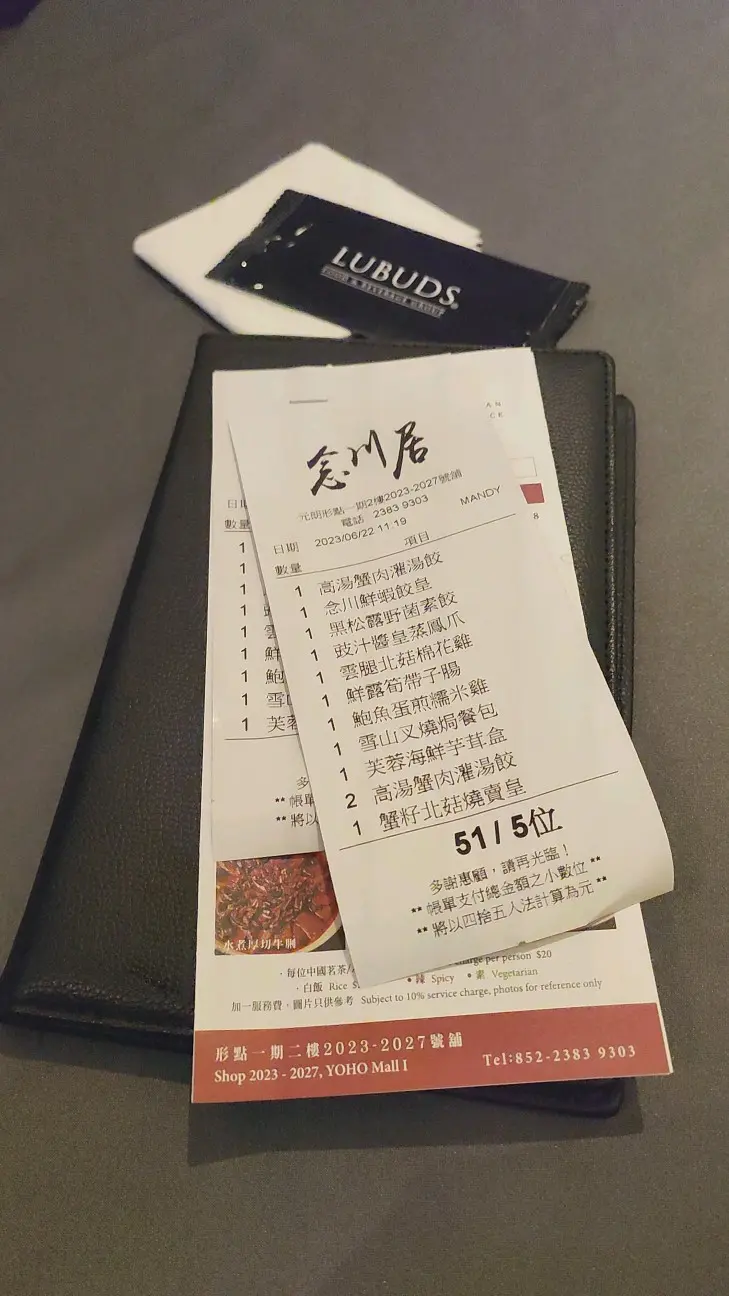 LUBUDS
FOOD & BEVERAGE GROUP
AN
CE
念川居
元朗形點一期2樓2023-2027號舖
電話 2383 9303
MANDY
日期 2023/06/22 11:19
數量 項目
1 高湯蟹肉灌湯餃
1 念川鮮蝦餃皇
1 黑松露野菌素餃
1 豉汁醬皇蒸鳳爪
1 雲腿北菇棉花雞
1 鮮露筍帶子腸
1 鮑魚蛋煎糯米雞
1 雪山叉燒焗餐包
1 芙蓉海鮮芋茸盒
2 高湯蟹肉灌湯餃
1 蟹籽北菇燒賣皇
51 / 5位
多謝惠顧，請再光臨！
** 帳單支付總金額之小數位 **
** 將以四捨五入法計算為元 **
日
數量
1
1
1
1
1 雲
1 鮮
1 鮑
1 雪山
1 芙蓉
多
** 帳單
** 將以
8
水煮厚切牛𦟌
·每位中國茗茶/
charge per person $20
·白飯 Rice $
•辣 Spicy •素 Vegetarian
加一服務費，圖片只供參考 Subject to 10% service charge, photos for reference only
形點一期二樓2023-2027號舖
Shop 2023 - 2027, YOHO Mall I
Tel:852-2383 9303